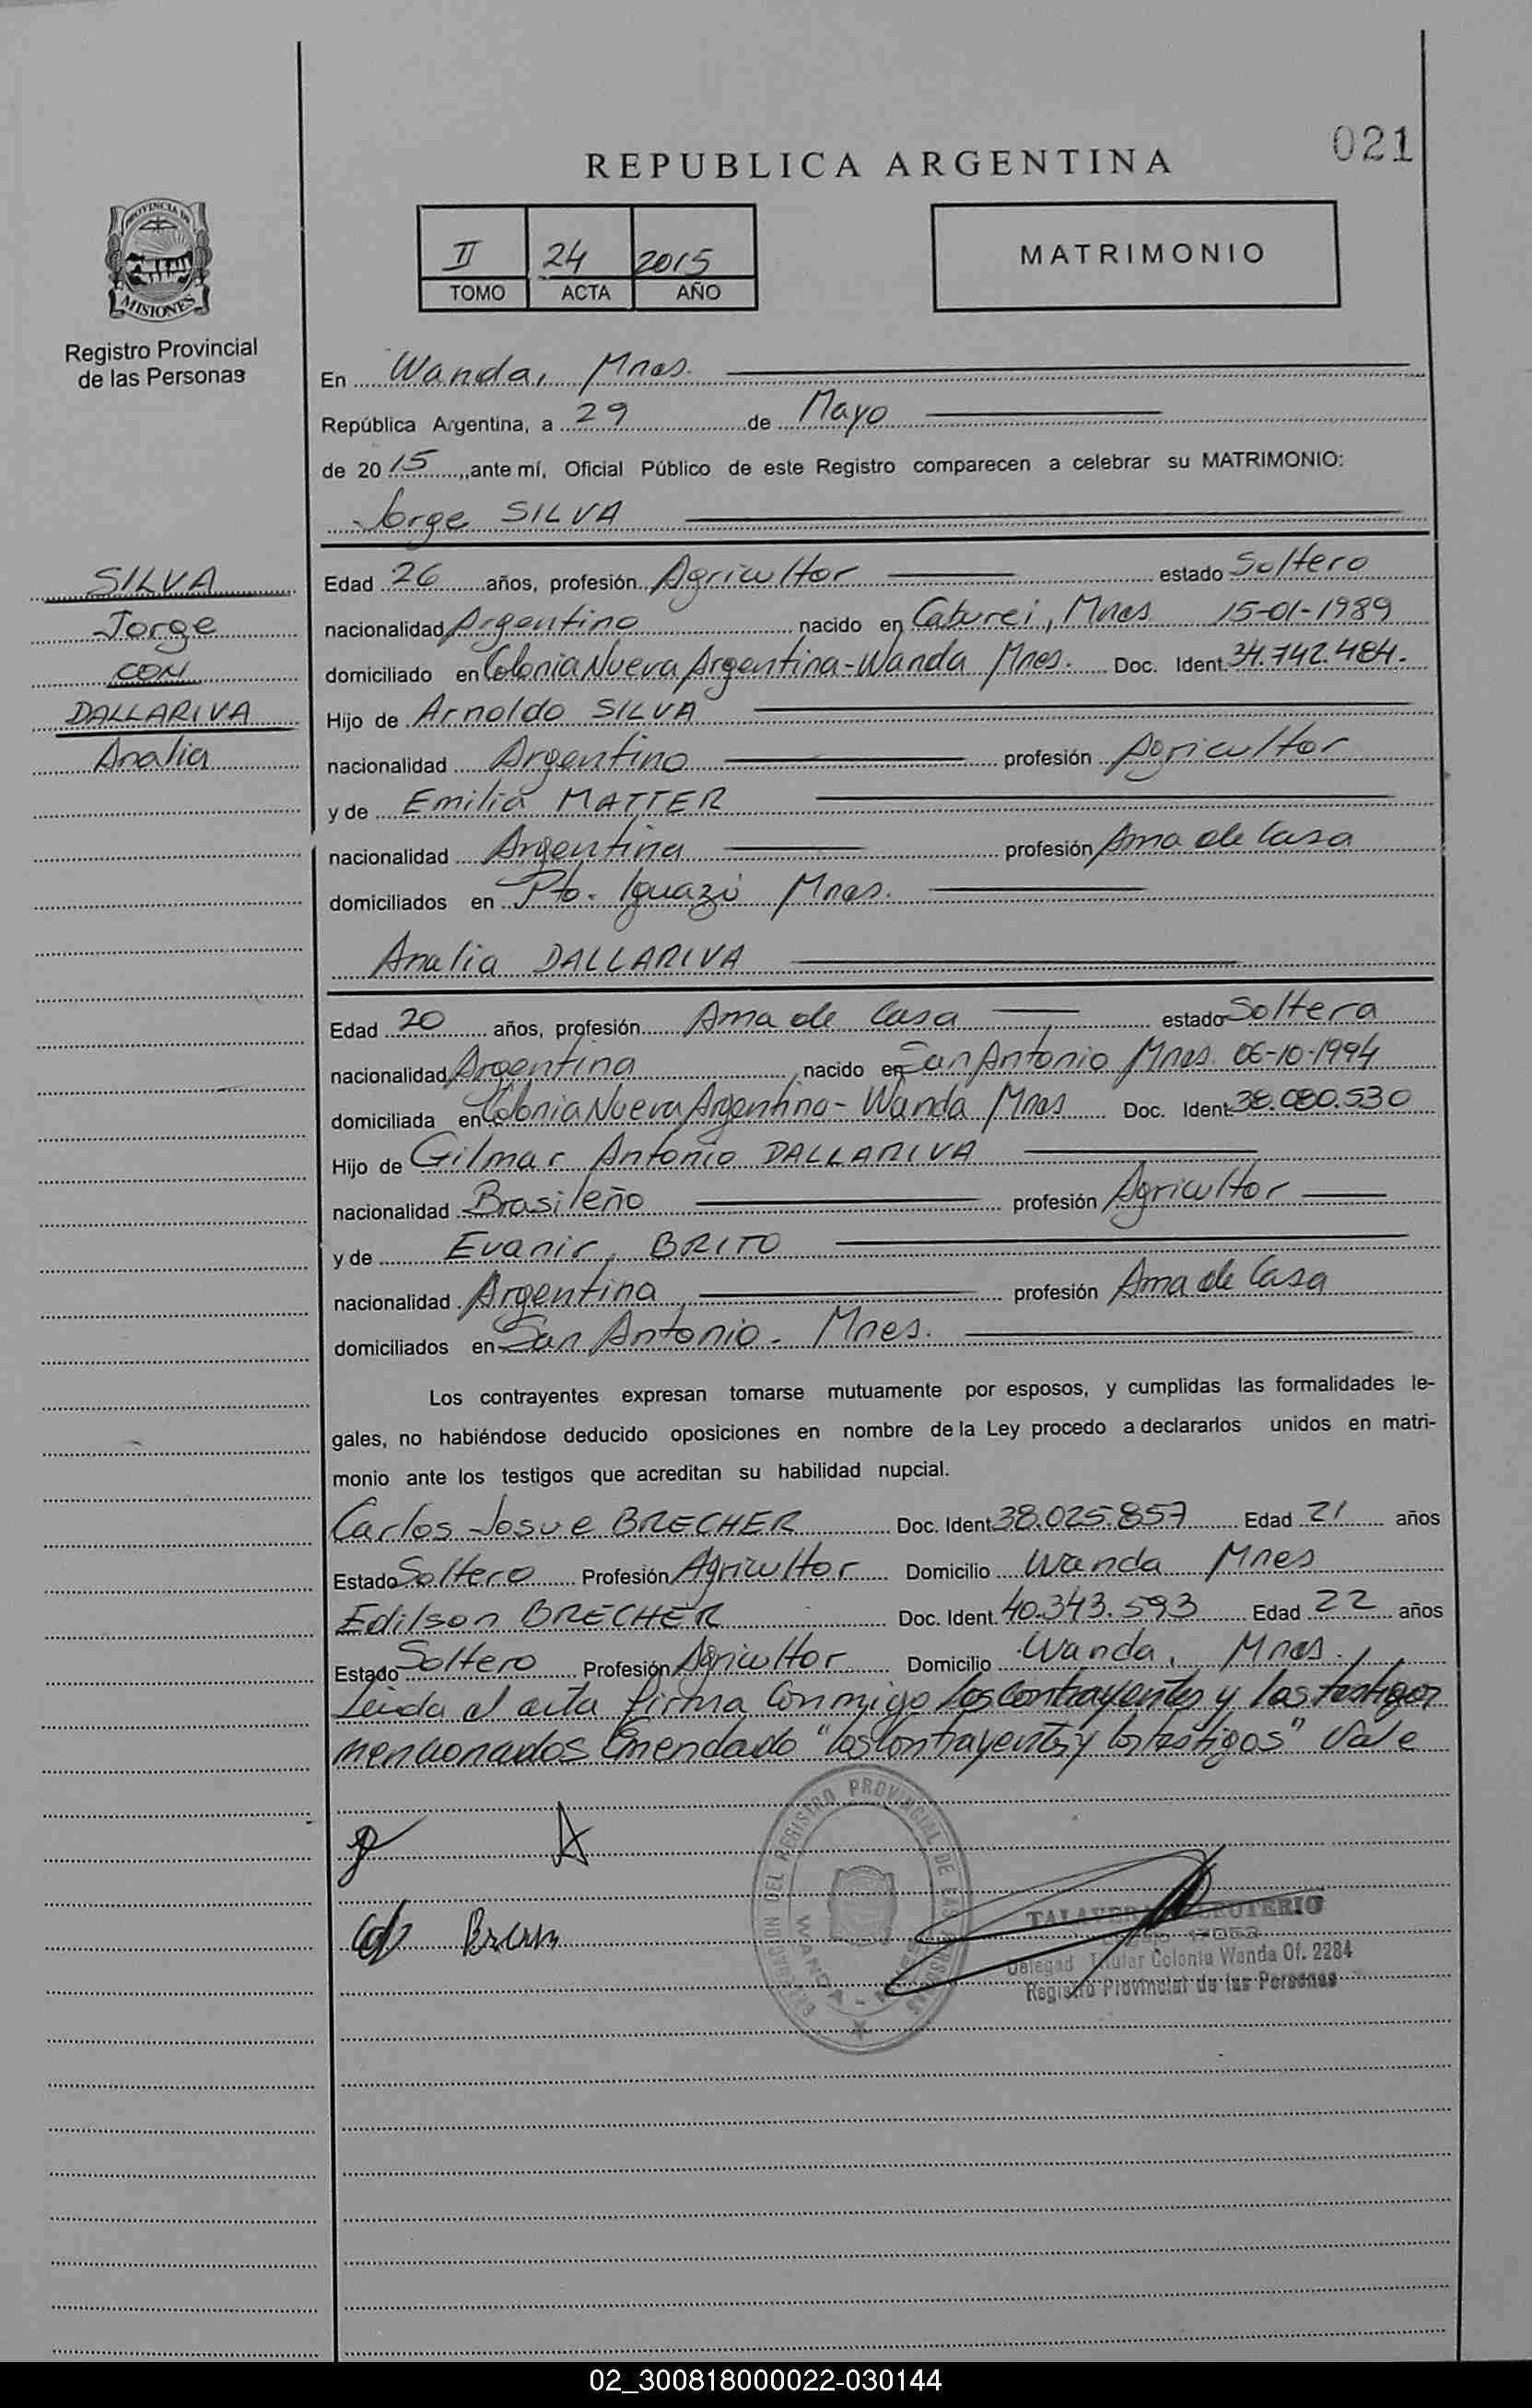 021
REPUBLICA ARGENTINA
PROVINCIA DE
MISIONES
Registro Provincial
de las Personas
II 24 2015
TOMO ACTA AÑO
MATRIMONIO
En Wanda, Mnes.
República Argentina, a 29 de Mayo
de 2015, ante mí, Oficial Público de este Registro comparecen a celebrar su MATRIMONIO:
Jorge SILVA
SILVA
Jorge
CON
DALLARIVA
Analia
Edad 26 años, profesión Agricultor estado Soltero
nacionalidad Argentino nacido en Caburei, Mnes. 15-01-1989
domiciliado en Colonia Nueva Argentina-Wanda Mnes. Doc. Ident. 34.742.484.
Hijo de Arnoldo SILVA
nacionalidad Argentino profesión Agricultor
y de Emilia MATTER
nacionalidad Argentina profesión Ama de Casa
domiciliados en Pto. Iguazú Mnes.
Analia DALLARIVA
Edad 20 años, profesión Ama de Casa estado Soltera
nacionalidad Argentina nacido en San Antonio Mnes. 06-10-1994
domiciliada en Colonia Nueva Argentina - Wanda Mnes Doc. Ident. 38.080.530
Hijo de Gilmar Antonio DALLARIVA
nacionalidad Brasileño profesión Agricultor
y de Evanir BRITO
nacionalidad Argentina profesión Ama de Casa
domiciliados en San Antonio - Mnes.
Los contrayentes expresan tomarse mutuamente por esposos, y cumplidas las formalidades le-
gales, no habiéndose deducido oposiciones en nombre de la Ley procedo a declararlos unidos en matri-
monio ante los testigos que acreditan su habilidad nupcial.
Carlos Josue BRECHER Doc. Ident. 38.025.857 Edad 21 años
Estado Soltero Profesión Agricultor Domicilio Wanda Mnes
Edilson BRECHER Doc. Ident. 40.343.593 Edad 22 años
Estado Soltero Profesión Agricultor Domicilio Wanda, Mnes.
Leida el acta firma conmigo los contrayentes y los testigos
mencionados Emendado "los contrayentes y los testigos" Vale
DELEGACION DEL REGISTRO PROVINCIAL DE LAS PERSONAS
WANDA - MNES
Titular Colonia Wanda Of. 2284
Registro Provincial de las Personas
02_300818000022-030144